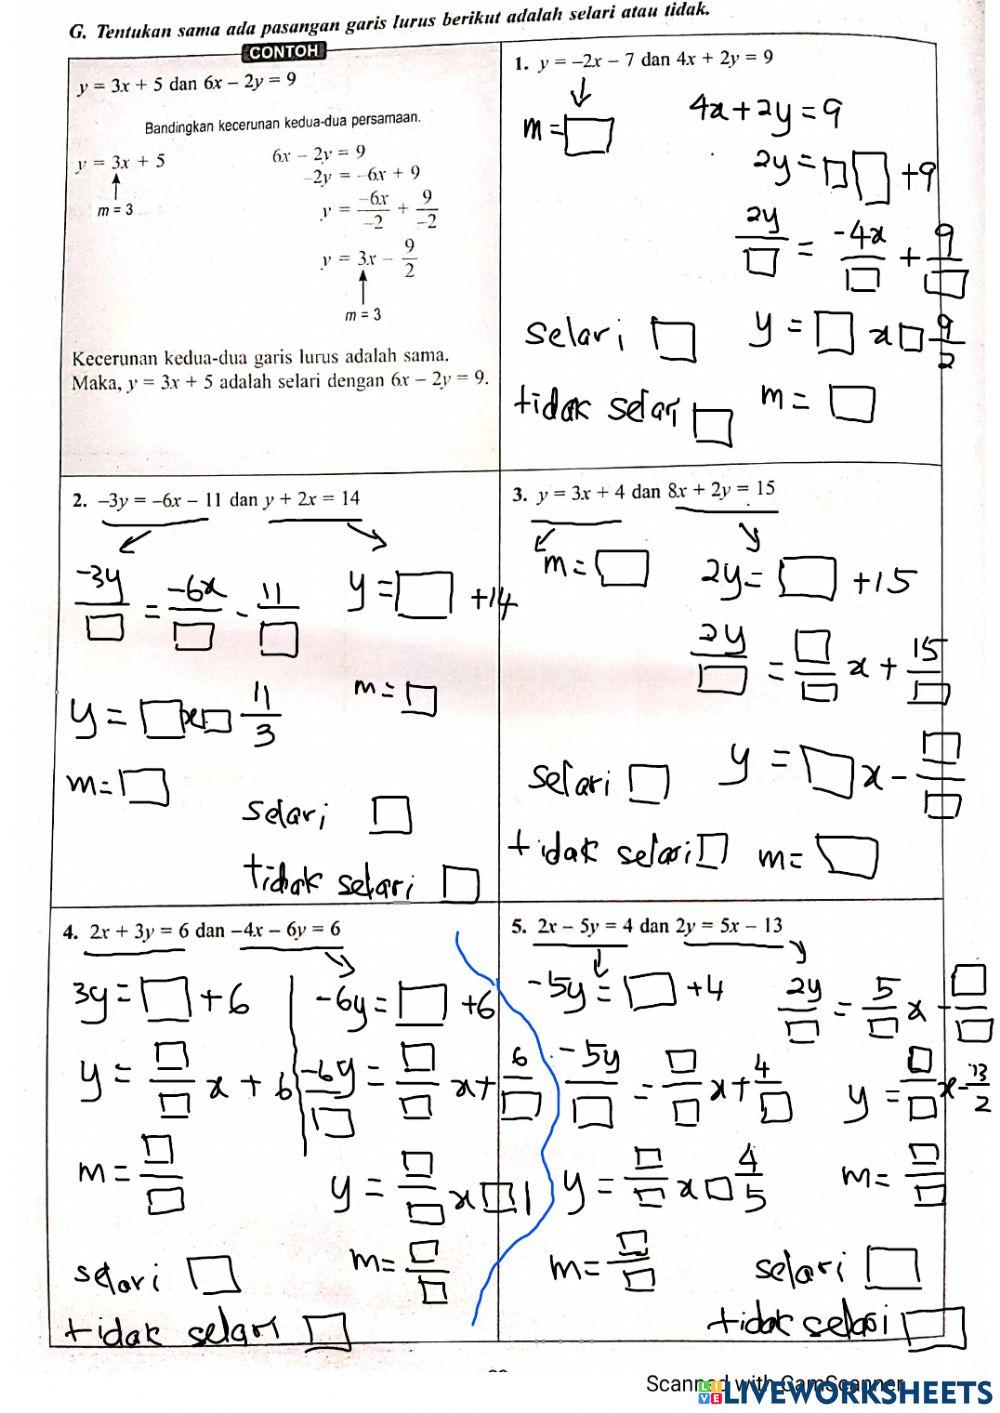 G. Tentukan sama ada pasangan garis lurus berikut adalah selari atau tidak.
CONTOH
y = 3x + 5 dan 6x – 2y = 9
Bandingkan kecerunan kedua-dua persamaan.
y = 3x + 5
m = 3
6x – 2y = 9
–2y = –6x + 9
y = –6x/–2 + 9/–2
y = 3x – 9/2
m = 3
Kecerunan kedua-dua garis lurus adalah sama.
Maka, y = 3x + 5 adalah selari dengan 6x – 2y = 9.
1. y = –2x – 7 dan 4x + 2y = 9
m = □
4x + 2y = 9
2y = □ □ + 9
2y/□ = -4x/□ + 9/□
y = □ x □ 9/2
m = □
selari □
tidak selari □
2. –3y = –6x – 11 dan y + 2x = 14
-3y/□ = -6x/□ - 11/□
y = □x □ 11/3
m = □
y = □ + 14
m = □
selari □
tidak selari □
3. y = 3x + 4 dan 8x + 2y = 15
m = □
2y = □ + 15
2y/□ = □/□ x + 15/□
y = □ x - □/□
m = □
selari □
tidak selari □
4. 2x + 3y = 6 dan –4x – 6y = 6
3y = □ + 6
y = □/□ x + 6
m = □/□
-6y = □ + 6
-6y/□ = □/□ x + 6/□
y = □/□ x □ 1
m = □/□
selari □
tidak selari □
5. 2x – 5y = 4 dan 2y = 5x – 13
-5y = □ + 4
-5y/□ = □/□ x + 4/□
y = □/□ x □ 4/5
m = □/□
2y/□ = 5/□ x - □/□
y = □/□ x - 13/2
m = □/□
selari □
tidak selari □
Scanned with CamScanner
LIVEWORKSHEETS